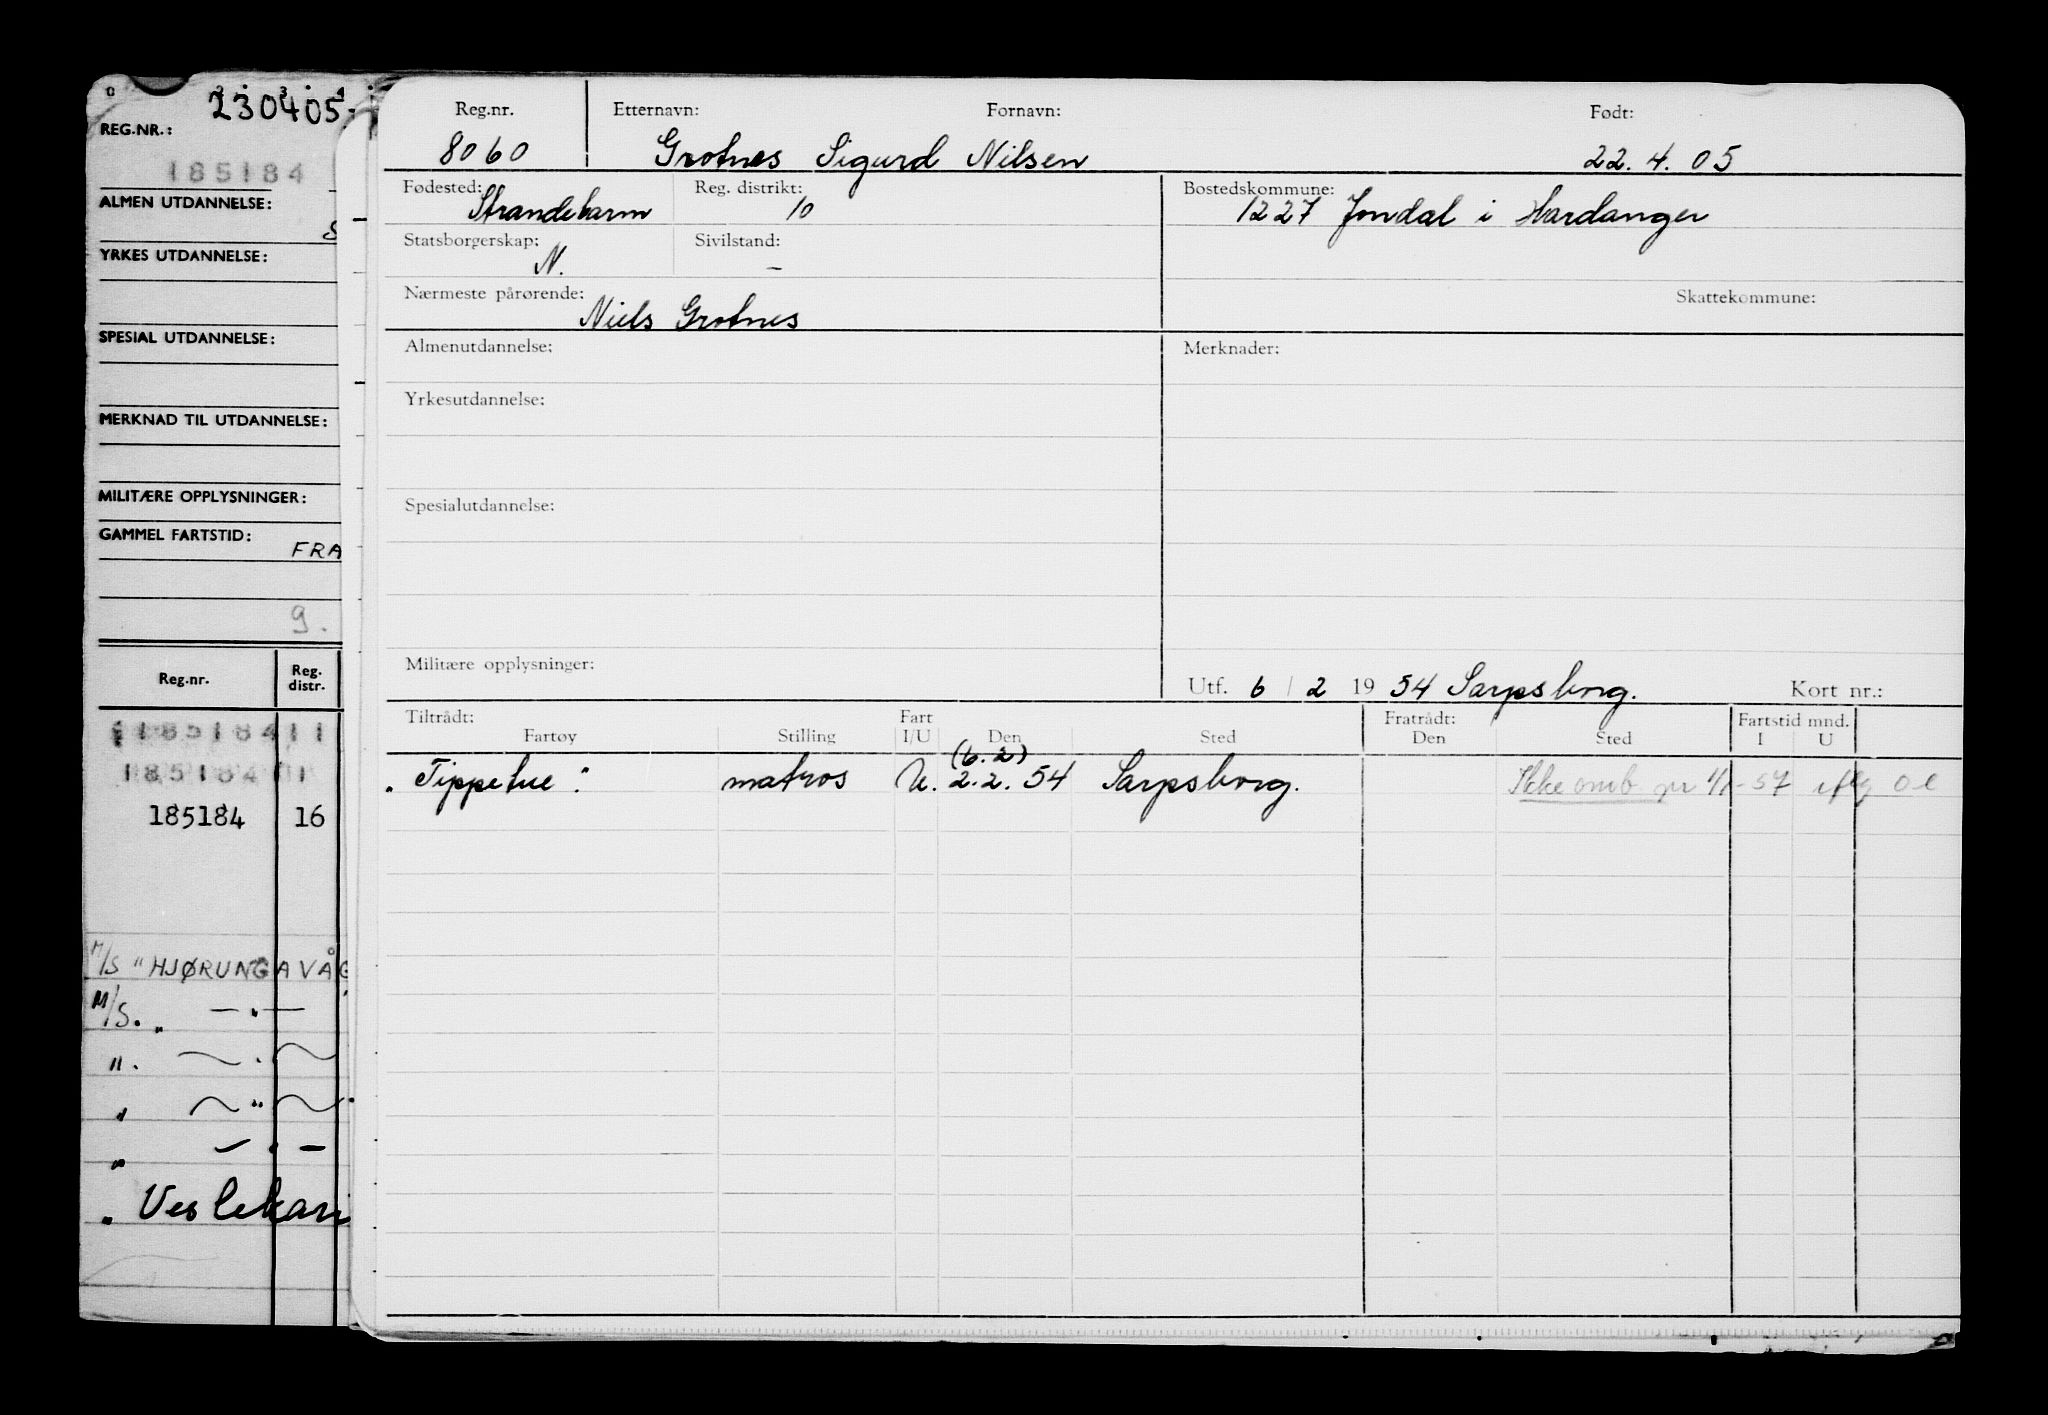 230405
REG.NR.:
185184
ALMEN UTDANNELSE:
S
YRKES UTDANNELSE:
SPESIAL UTDANNELSE:
MERKNAD TIL UTDANNELSE:
MILITÆRE OPPLYSNINGER:
GAMMEL FARTSTID:
FRA
9.
Reg.nr. Reg. distr.
185184 11
185184 11
185184 16
M/S "HJØRUNGAVÅG
M/S. " — " —
". "
" "
" "
" Veslekari
Reg.nr. Etternavn: Fornavn: Født:
8060 Grotnes Sigurd Nilsen 22.4.05
Fødested: Reg. distrikt: Bostedskommune:
Strandebarm 10 1227 Jondal i Hardanger
Statsborgerskap: Sivilstand:
N. –
Nærmeste pårørende: Skattekommune:
Niels Grotnes
Almenutdannelse: Merknader:
Yrkesutdannelse:
Spesialutdannelse:
Militære opplysninger:
Utf. 6 / 2 19 54 Sarpsborg. Kort nr.:
Tiltrådt: Fart Fratrådt: Fartstid mnd.
Fartøy Stilling I/U Den Sted Den Sted I U
(6.2)
"Tippetue" matros U. 2.2.54 Sarpsborg. Ikke omb. pr 1/1-57